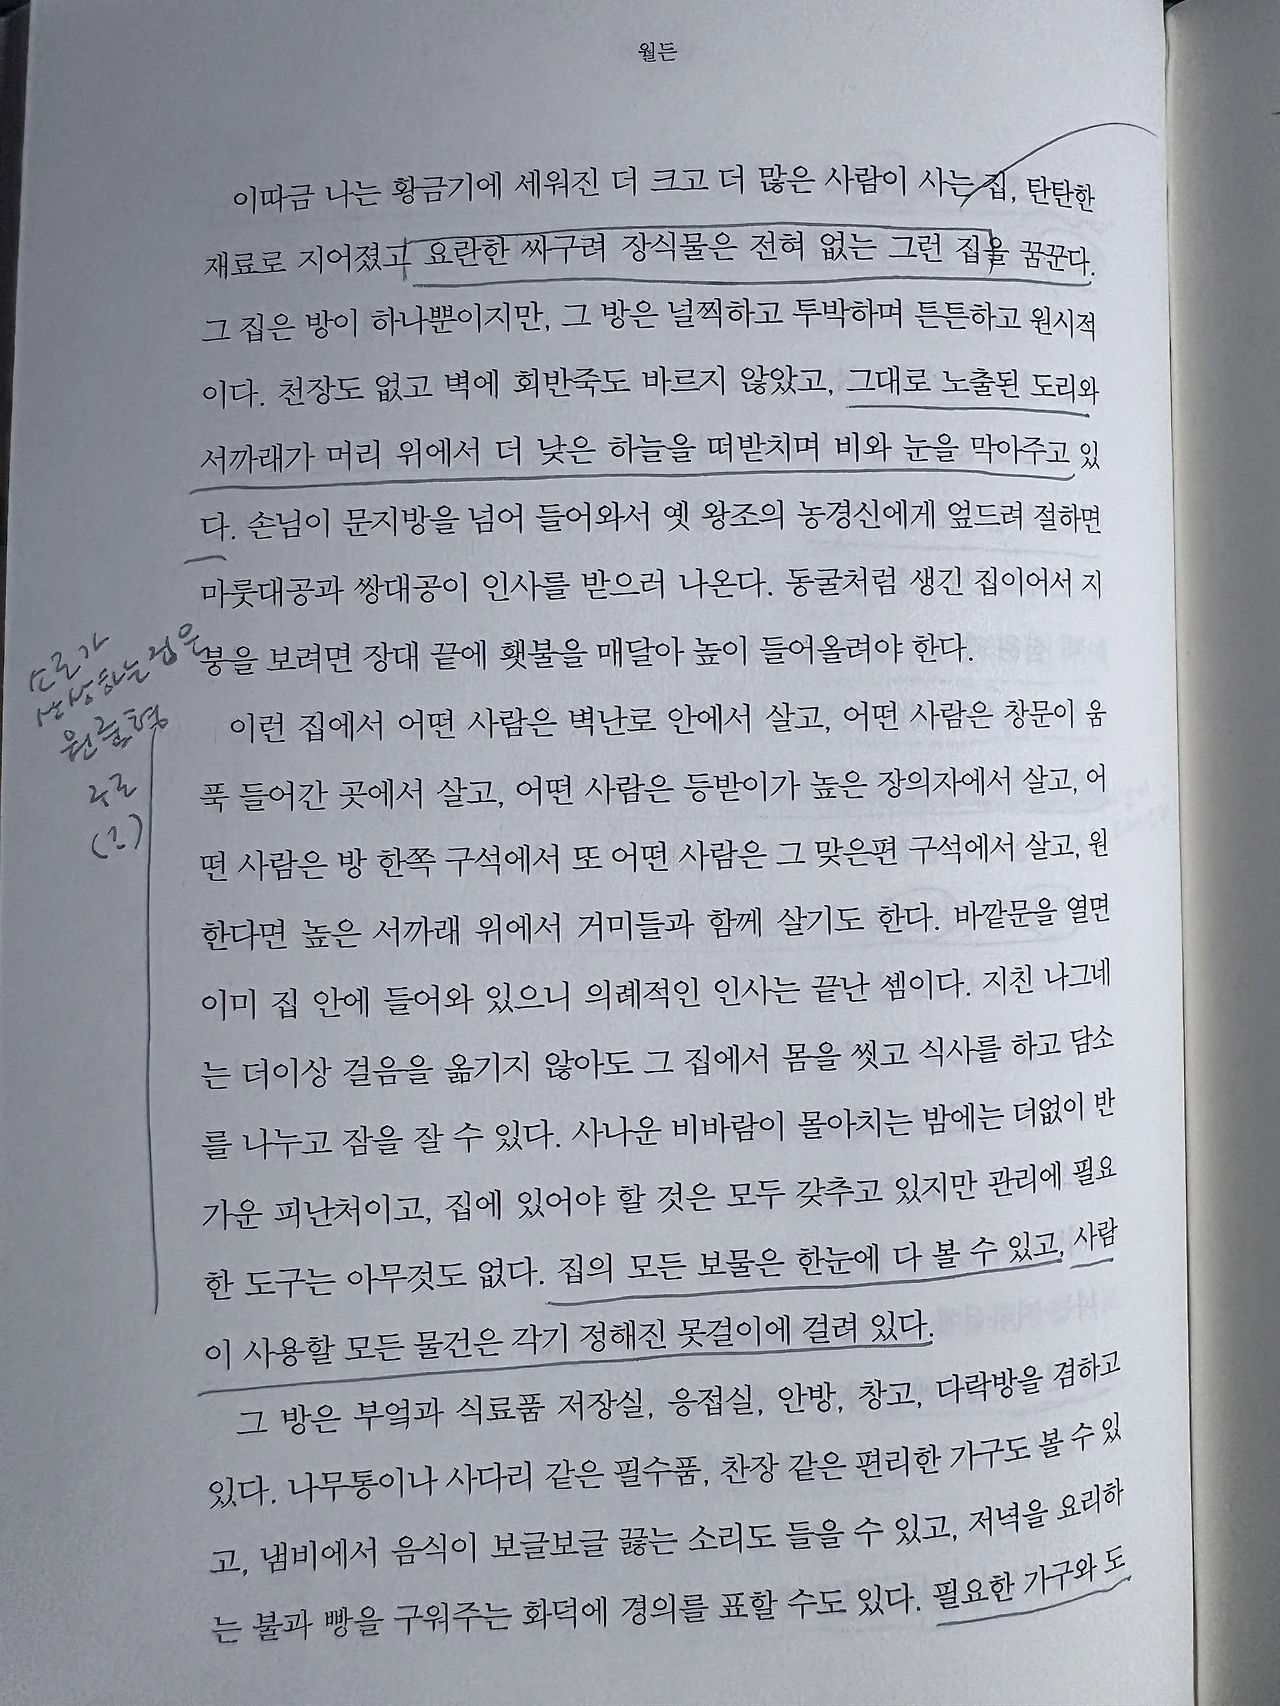 월든
이따금 나는 황금기에 세워진 더 크고 더 많은 사람이 사는 집, 탄탄한
재료로 지어졌고 요란한 싸구려 장식물은 전혀 없는 그런 집을 꿈꾼다.
그 집은 방이 하나뿐이지만, 그 방은 널찍하고 투박하며 튼튼하고 원시적
이다. 천장도 없고 벽에 회반죽도 바르지 않았고, 그대로 노출된 도리와
서까래가 머리 위에서 더 낮은 하늘을 떠받치며 비와 눈을 막아주고 있
다. 손님이 문지방을 넘어 들어와서 옛 왕조의 농경신에게 엎드려 절하면
마룻대공과 쌍대공이 인사를 받으러 나온다. 동굴처럼 생긴 집이어서 지
붕을 보려면 장대 끝에 횃불을 매달아 높이 들어올려야 한다.
소로가
상상하는 집은
원룸형
구조
이런 집에서 어떤 사람은 벽난로 안에서 살고, 어떤 사람은 창문이 움
푹 들어간 곳에서 살고, 어떤 사람은 등받이가 높은 장의자에서 살고, 어
떤 사람은 방 한쪽 구석에서 또 어떤 사람은 그 맞은편 구석에서 살고, 원
한다면 높은 서까래 위에서 거미들과 함께 살기도 한다. 바깥문을 열면
이미 집 안에 들어와 있으니 의례적인 인사는 끝난 셈이다. 지친 나그네
는 더이상 걸음을 옮기지 않아도 그 집에서 몸을 씻고 식사를 하고 담소
를 나누고 잠을 잘 수 있다. 사나운 비바람이 몰아치는 밤에는 더없이 반
가운 피난처이고, 집에 있어야 할 것은 모두 갖추고 있지만 관리에 필요
한 도구는 아무것도 없다. 집의 모든 보물은 한눈에 다 볼 수 있고, 사람
이 사용할 모든 물건은 각기 정해진 못걸이에 걸려 있다.
그 방은 부엌과 식료품 저장실, 응접실, 안방, 창고, 다락방을 겸하고
있다. 나무통이나 사다리 같은 필수품, 찬장 같은 편리한 가구도 볼 수 있
고, 냄비에서 음식이 보글보글 끓는 소리도 들을 수 있고, 저녁을 요리하
는 불과 빵을 구워주는 화덕에 경의를 표할 수도 있다. 필요한 가구와 도